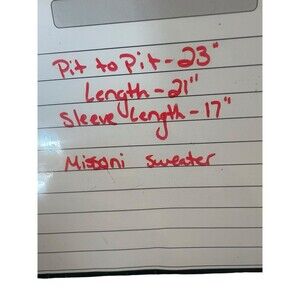 Pit to Pit - 23"
Length - 21"
Sleeve Length - 17"
Missoni sweater